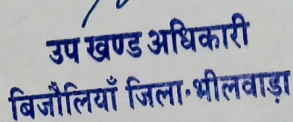 उप खण्ड अधिकारी
बिजौलियाँ जिला-भीलवाड़ा